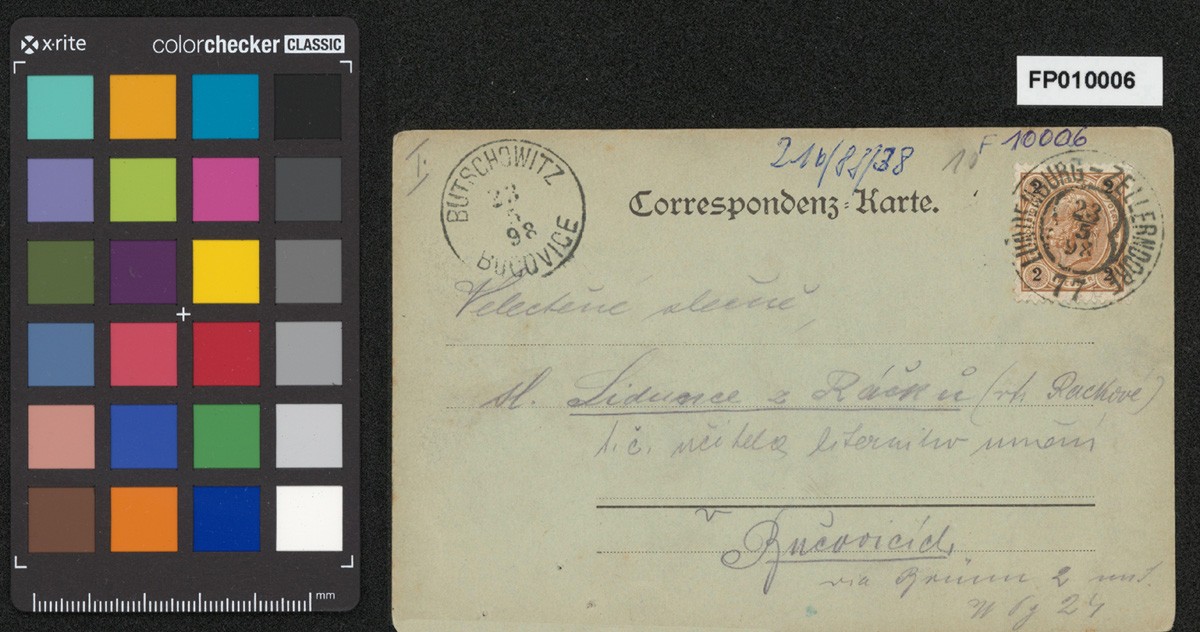 x·rite colorchecker CLASSIC
FP010006
I.
21b/85/38 10 F 10006
BUTSCHOWITZ
23
5
98
BUČOVICE
Correspondenz-Karte.
LUNDENBURG - ZELLERNDORF
23
5
98
77
2 2
2 2
Velectěné slečně,
sl. Lidunce z Ráčků (rh. Rackové)
t. č. učitelce literního umění
v
Bučovicích,
via Brünn
mm